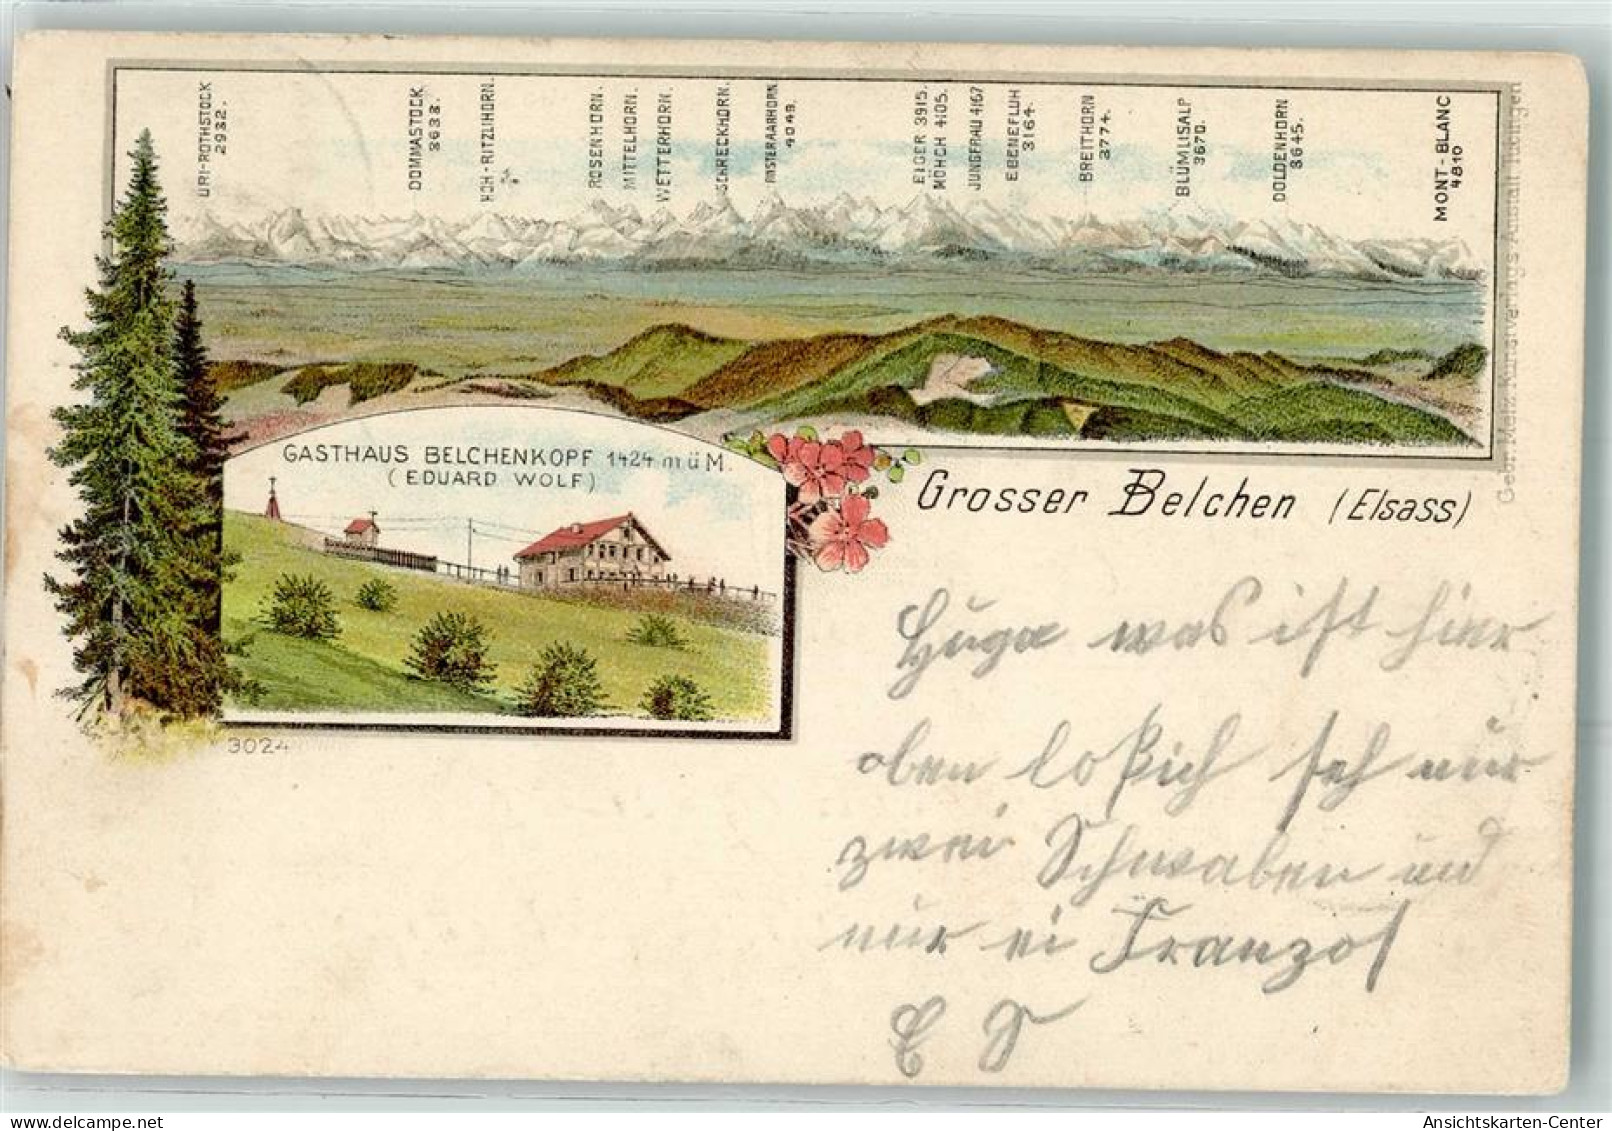 URI-ROTHSTOCK
2932.
DOMMASTOCK
3633.
HOH-RITZLIHORN.
ROSENHORN.
MITTELHORN.
WETTERHORN.
SCHRECKHORN.
FINSTERAARHORN
4049.
EIGER 3915.
MÖNCH 4105.
JUNGFRAU 4167
EBENEFLUH
3164.
BREITHORN
3774.
BLÜMLISALP
3670.
DOLDENHORN
3645.
MONT-BLANC
4810
GASTHAUS BELCHENKOPF 1424 m ü M.
(EDUARD WOLF)
Grosser Belchen (Elsass)
Geor. Metz Kunstverlags Anstalt Tübingen
3024
was ist hier
oben los ich seh nur
zwei Schwaben und
nur ei Franzos
E S
Ansichtskarten-Center